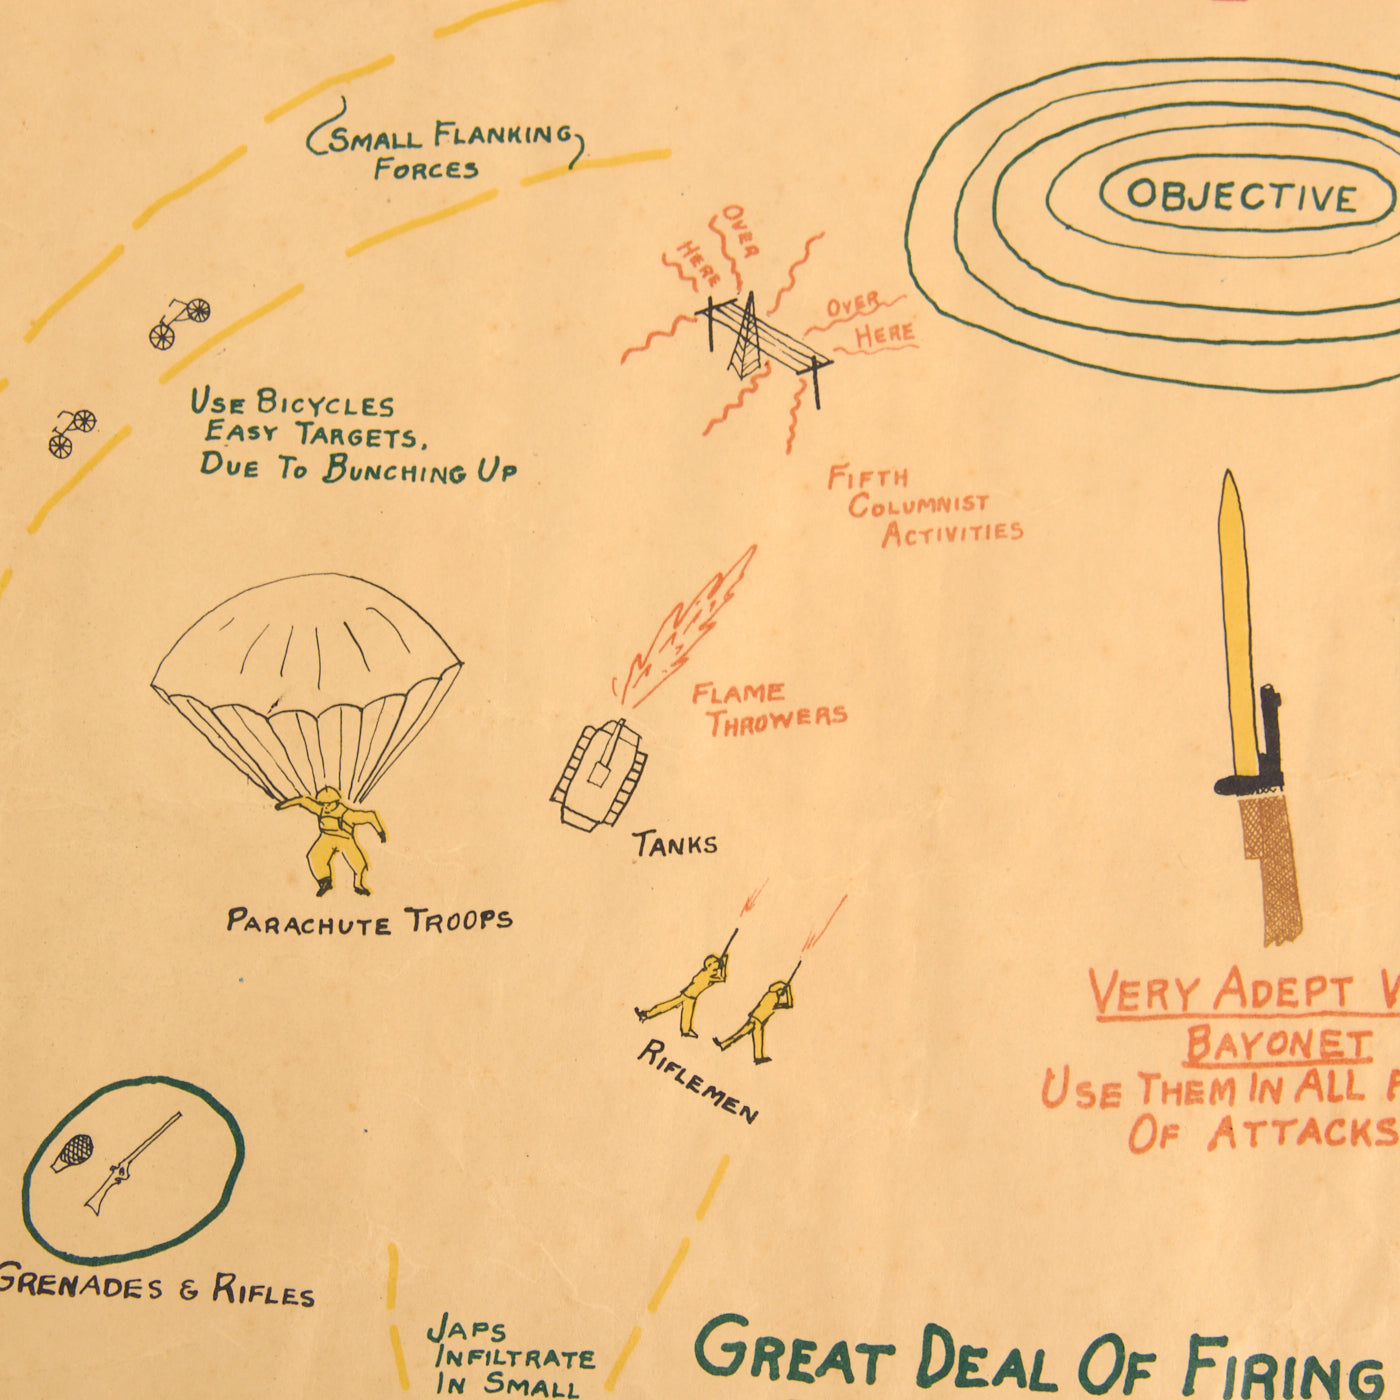 (SMALL FLANKING)
FORCES
OVER
HERE
OVER
HERE
OBJECTIVE
USE BICYCLES
EASY TARGETS,
DUE TO BUNCHING UP
FIFTH
COLUMNIST
ACTIVITIES
FLAME
THROWERS
TANKS
PARACHUTE TROOPS
RIFLEMEN
VERY ADEPT
BAYONET
USE THEM IN ALL
OF ATTACKS
GRENADES & RIFLES
JAPS
INFILTRATE
IN SMALL
GREAT DEAL OF FIRING